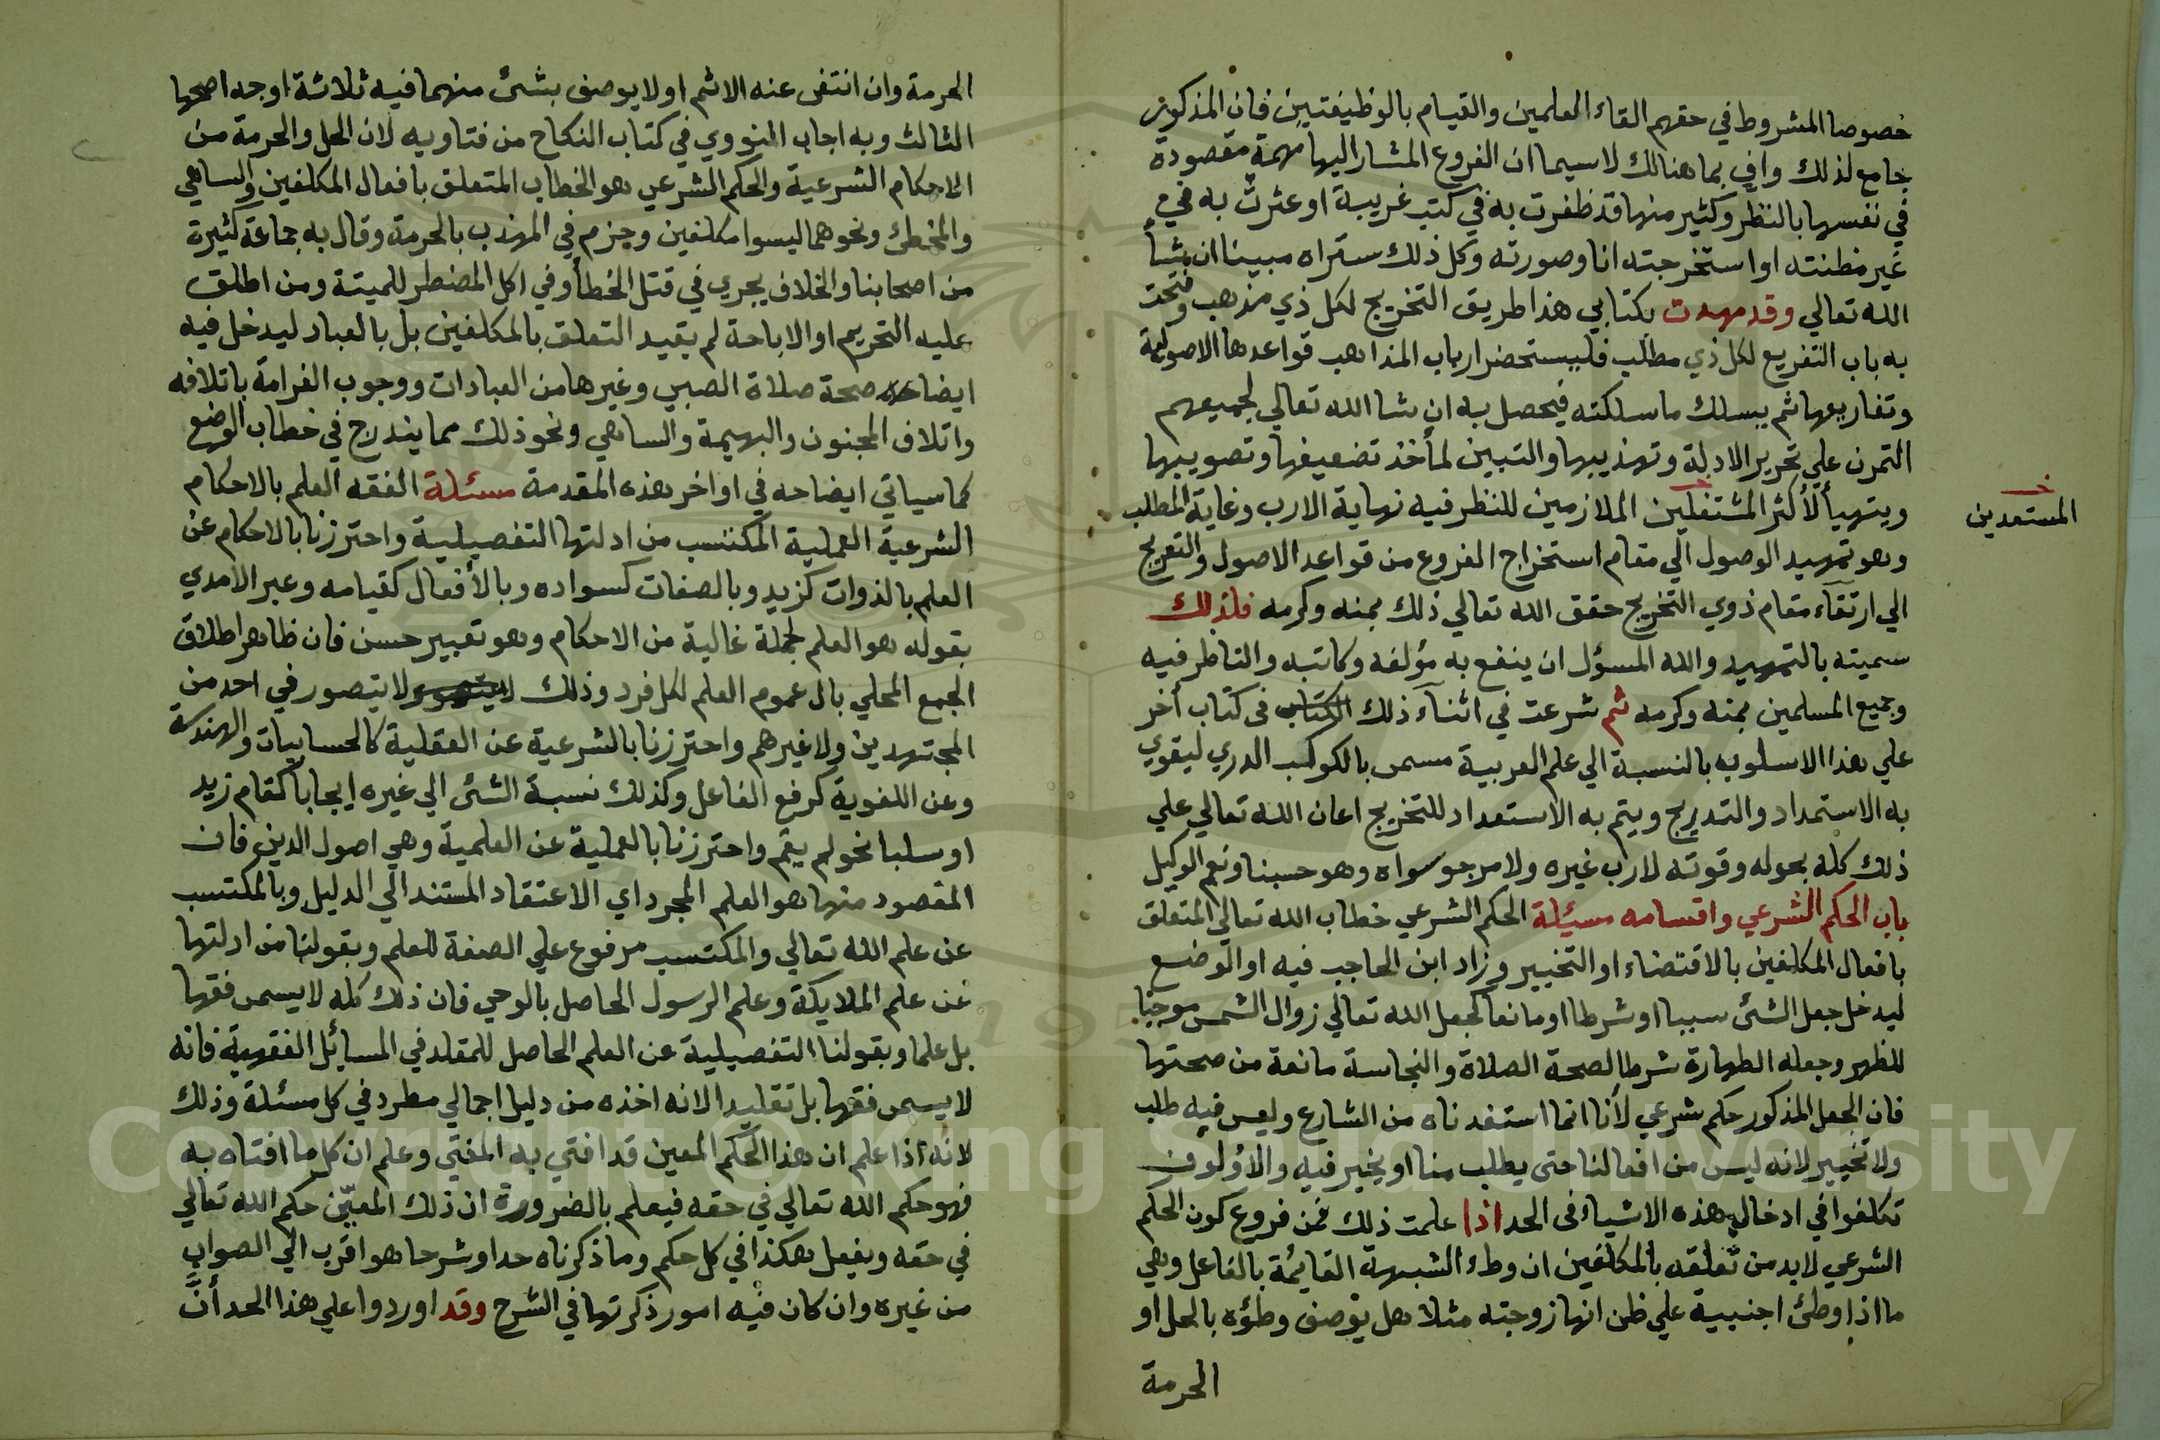 خصوصا المشروط في حقهم القاء العلمين والقيام بالوظيفتين فان المذكور
جامع لذلك وافي بما هنالك لاسيما ان الفروع المشار اليها مهمة مقصودة
في نفسها بالنظر وكثير منها قد ظفرت به في كتب غريبة او عثرت به في
غير مظنته او استخرجته انا وصورته وكل ذلك ستراه مبينا ان شأ
الله تعالي وقد مهدت بكتابي هذا طريق التخريج لكل ذي مذهب وفتحت
به باب التفريع لكل ذي مطلب فليستحضر ارباب المذاهب قواعدها الاصولية
وتفاريعها ثم يسلك ما سلكته فيحصل به ان شا الله تعالي لجميعهم
التمرن علي تحرير الادلة وتهذيبها والتبين لمأخذ تضعيفها وتصويبها
ويتهيأ لأكثر المشتغلين الملازمين للنظر فيه نهاية الارب وغاية المطلب
خـ
المستعدين
وهو تمهيد الوصول الي مقام استخراج الفروع من قواعد الاصول والتعريج
الي ارتقآء مقام ذوي التخريج حقق الله تعالي ذلك بمنه وكرمه فلذلك
سميته بالتمهيد والله المسؤل ان ينفع به مؤلفه وكاتبه والناظر فيه
وجميع المسلمين بمنه وكرمه ثم شرعت في اثنآء ذلك الكتاب فى كتاب أخر
علي هذا الاسلوب بالنسبة الي علم العربية مسمى بالكوكب الدري ليقوي
به الاستمداد والتدريج ويتم به الاستعداد للتخريج اعان الله تعالي علي
ذلك كله بحوله وقوته لارب غيره ولا مرجو سواه وهو حسبنا ونعم الوكيل
باب الحكم الشرعي واقسامه مسئلة الحكم الشرعي خطاب الله تعالي المتعلق
بافعال المكلفين بالاقتضاء او التخيير وزاد ابن الحاجب فيه او الوضع
ليدخل جعل الشئ سببا او شرطا او مانعا كجعل الله تعالي زوال الشمس موجبا
للظهر وجعله الطهارة شرطا لصحة الصلاة والنجاسة مانعة من صحتها
فان الجعل المذكور حكم شرعي لأنا انما استفدناه من الشارع وليس فيه طلب
ولا تخيير لانه ليس من افعالنا حتى يطلب منا او يخير فيه والاولون
تكلفوا في ادخال هذه الاشياء فى الحد اذا علمت ذلك فمن فروع كون الحكم
الشرعي لابد من تعلقه بالمكلفين ان وطء الشبهة القائمة بالفاعل وهي
ما اذا وطئ اجنبية علي ظن انها زوجته مثلا هل يوصف وطؤه بالحل او
الحرمة
الحرمة وان انتفى عنه الاثم او لا يوصف بشئ منهما فيه ثلاثة اوجه اصحها
الثالث وبه اجاب النووي في كتاب النكاح من فتاويه لان الحل والحرمة من
الاحكام الشرعية والحكم الشرعي هو الخطاب المتعلق بافعال المكلفين والساهي
والمخطئ ونحوهما ليسوا مكلفين وجزم في المهذب بالحرمة وقال به جماعة كثيرة
من اصحابنا والخلاف يجري في قتل الخطأ وفي اكل المضطر للميتة ومن اطلق
عليه التحريم او الاباحة لم يقيد التعلق بالمكلفين بل بالعباد ليدخل فيه
ايضا صحة صلاة الصبي وغيرها من العبادات ووجوب الغرامة باتلافه
واتلاف المجنون والبهيمة والساهي ونحو ذلك مما يندرج في خطاب الوضع
كما سياتي ايضاحه في اواخر هذه المقدمة مسئلة الفقه العلم بالاحكام
الشرعية العملية المكتسب من ادلتها التفصيلية واحترزنا بالاحكام عن
العلم بالذوات كزيد وبالصفات كسواده وبالأفعال كقيامه وعبر الامدي
بقوله هو العلم لجملة غالبة من الاحكام وهو تعبير حسن فان ظاهر اطلاق
الجمع المحلي بال عموم العلم لكل فرد وذلك لا يتصور في احد من
المجتهدين ولا غيرهم واحترزنا بالشرعية عن العقلية كالحسابيات والهندسة
وعن اللغوية كرفع الفاعل وكذلك نسبة الشئ الي غيره ايجابا كقام زيد
او سلبا نحو لم يقم واحترزنا بالعملية عن العلمية وهي اصول الدين فان
المقصود منها هو العلم المجرد اي الاعتقاد المستند الي الدليل وبالمكتسب
عن علم الله تعالي والمكتسب مرفوع علي الصفة للعلم وبقولنا من ادلتها
عن علم الملايكة وعلم الرسول الحاصل بالوحي فان ذلك كله لا يسمى فقها
بل علما وبقولنا التفصيلية عن العلم الحاصل للمقلد في المسائل الفقهية فانه
لا يسمى فقها بل تقليدا لانه اخذه من دليل اجمالي مطرد في كل مسئلة وذلك
لانه اذا علم ان هذا الحكم المعين قد افتي به المفتي وعلم ان كل ما افتاه به
فهو حكم الله تعالي في حقه فيعلم بالضرورة ان ذلك المعيّن حكم الله تعالي
في حقه ويفعل هكذا في كل حكم وما ذكرناه حدا وشرحا هو اقرب الي الصواب
من غيره وان كان فيه امور ذكرتها في الشرح وقد اوردوا علي هذا الحد أنّ
Copyright © King Saud University